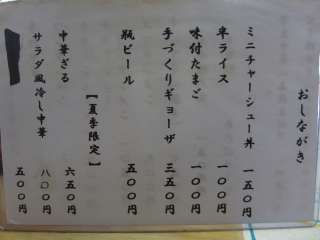 おしながき
ミニチャーシュー丼 一五〇円
半ライス 一〇〇円
味付たまご 一〇〇円
手づくりギョーザ 三五〇円
瓶ビール 五〇〇円
【夏季限定】
中華ざる 六五〇円
サラダ風冷し中華 八〇〇円
五〇〇円